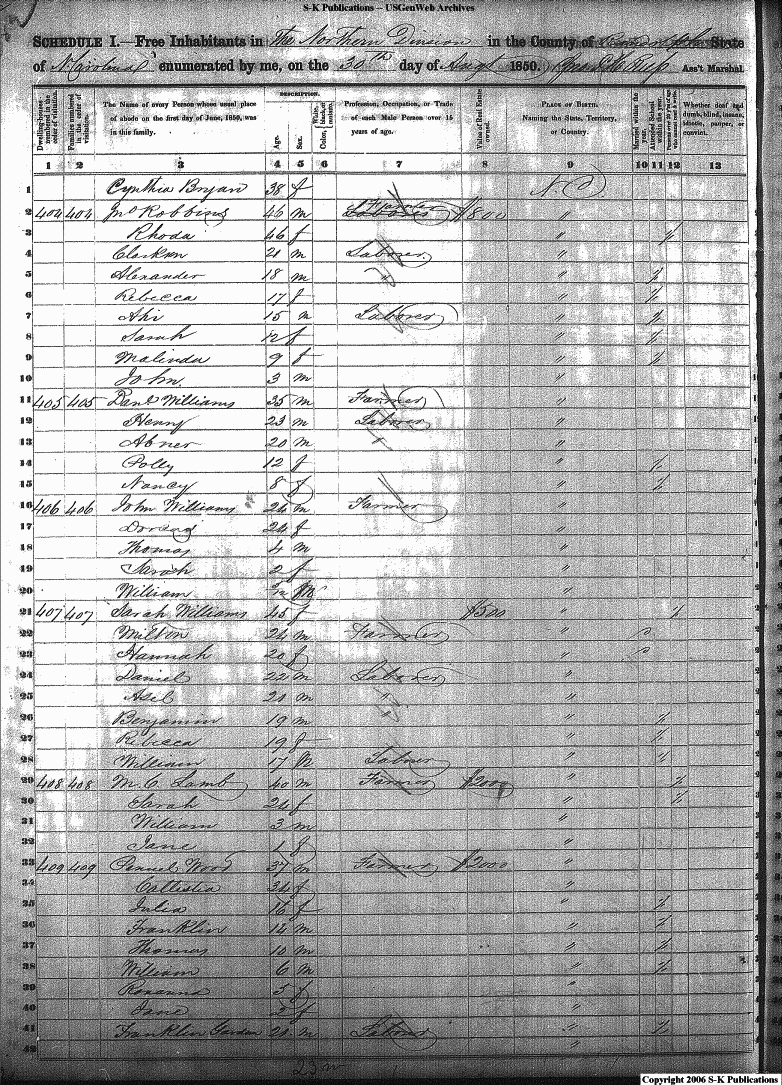 S-K Publications -- USGenWeb Archives
SCHEDULE I.—Free Inhabitants in The Northern Division in the County of State
of N Carolina enumerated by me, on the 30th day of Augt 1850. Ass't Marshal.
Dwelling-houses numbered in the order of visitation.
Families numbered in the order of visitation.
The Name of every Person whose usual place of abode on the first day of June, 1850, was in this family.
DESCRIPTION.
Age.
Sex.
Color, White, black, or mulatto.
Profession, Occupation, or Trade of each Male Person over 15 years of age.
Value of Real Estate owned.
PLACE OF BIRTH. Naming the State, Territory, or Country.
Married within the year.
Attended School within the year.
Persons over 20 y'rs of age who cannot read & write.
Whether deaf and dumb, blind, insane, idiotic, pauper, or convict.
1 2 3 4 5 6 7 8 9 10 11 12 13
1 Cynthia Bryan 38 f N.C.
2 404 404 Jno Robbins 46 m Farmer Laborer $800 "
3 Rhoda 46 f " /
4 21 m Laborer "
5 Alexander 18 m " " /
6 Rebecca 17 f " /
7 15 m Laborer " /
8 Sarah 12 f " /
9 Malinda 9 f " /
10 John 3 m "
11 405 405 Williams 35 m Farmer "
12 Henry 23 m Laborer "
13 Abner 20 m " "
14 Polly 12 f " /
15 Nancy 8 f " /
16 406 406 John Williams 24 m Farmer "
17 24 f "
18 Thomas 4 m "
19 Sarah 2 f "
20 William "
21 407 407 Sarah Williams 45 f $500 " /
22 Milton 24 m Farmer "
23 Hannah 20 f "
24 Daniel 22 m Laborer "
25 21 m " "
26 Benjamin 19 m " " /
27 Rebecca 19 f " /
28 William 17 m Laborer " /
29 408 408 M. C. Lamb 40 m Farmer $2000 " /
30 Sarah 24 f " /
31 William 3 m "
32 Jane 1 f "
33 409 409 Penuel Wood 37 m Farmer $2000 "
34 Callistia 34 f "
35 Julia 16 f " /
36 Franklin 12 m " /
37 Thomas 10 m " /
38 William 6 m " /
39 Roxanna 5 f "
40 Jane 2 f "
41 Franklin 21 m Laborer " /
42
23 m
Copyright 2006 S-K Publications